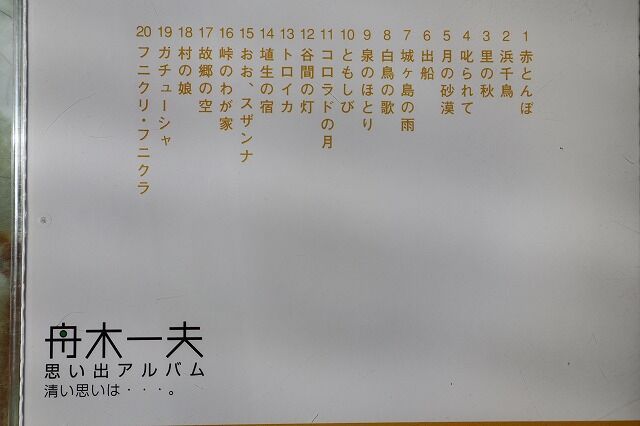 1 赤とんぼ
2 浜千鳥
3 里の秋
4 叱られて
5 月の砂漠
6 出船
7 城ヶ島の雨
8 白鳥の歌
9 泉のほとり
10 ともしび
11 コロラドの月
12 谷間の灯
13 トロイカ
14 埴生の宿
15 おお、スザンナ
16 峠のわが家
17 故郷の空
18 村の娘
19 ガチューシャ
20 フニクリ・フニクラ
舟木一夫
思い出アルバム
清い思いは・・・。